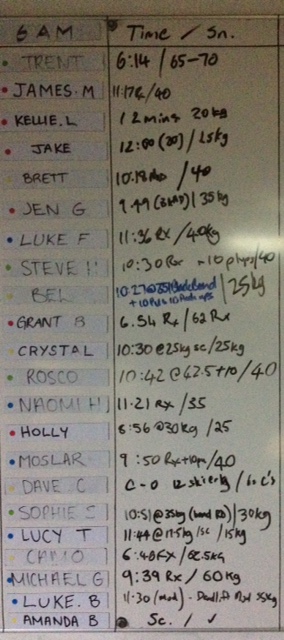 6 AM Time / Sn.
TRENT 6:14 / 65-70
JAMES.M 11:17 /40
KELLIE.L 12 mins 20kg
JAKE 12:00 (20) / 25kg
BRETT 10:18 / 40
JEN G 9.49 / 35kg
LUKE F 11:36 Rx / 40kg
STEVE 10:30 Rx +10 /40
BEL 10:27 @ 35 Band | 25kg
+ 10 10
GRANT B 6.54 Rx / 62 Rx
CRYSTAL 10:30 @ 25kg sc / 25kg
ROSCO 10:42 @ 42.5 + 10 / 40
NAOMI H 11.21 Rx / 35
HOLLY 8:56 @ 30kg / 25
MOSLAR 9:50 Rx + 10 / 40
DAVE C C-0 / 60 C's
SOPHIE S 10:51 @ 35kg | 30kg
LUCY T 11:44 @ 17.5kg /sc / 15kg
CAMO 6:48 RX / 62.5kg
MICHAEL G 9:39 Rx / 60kg
LUKE. B 11:30 (mod) -
AMANDA B Sc. / ✓